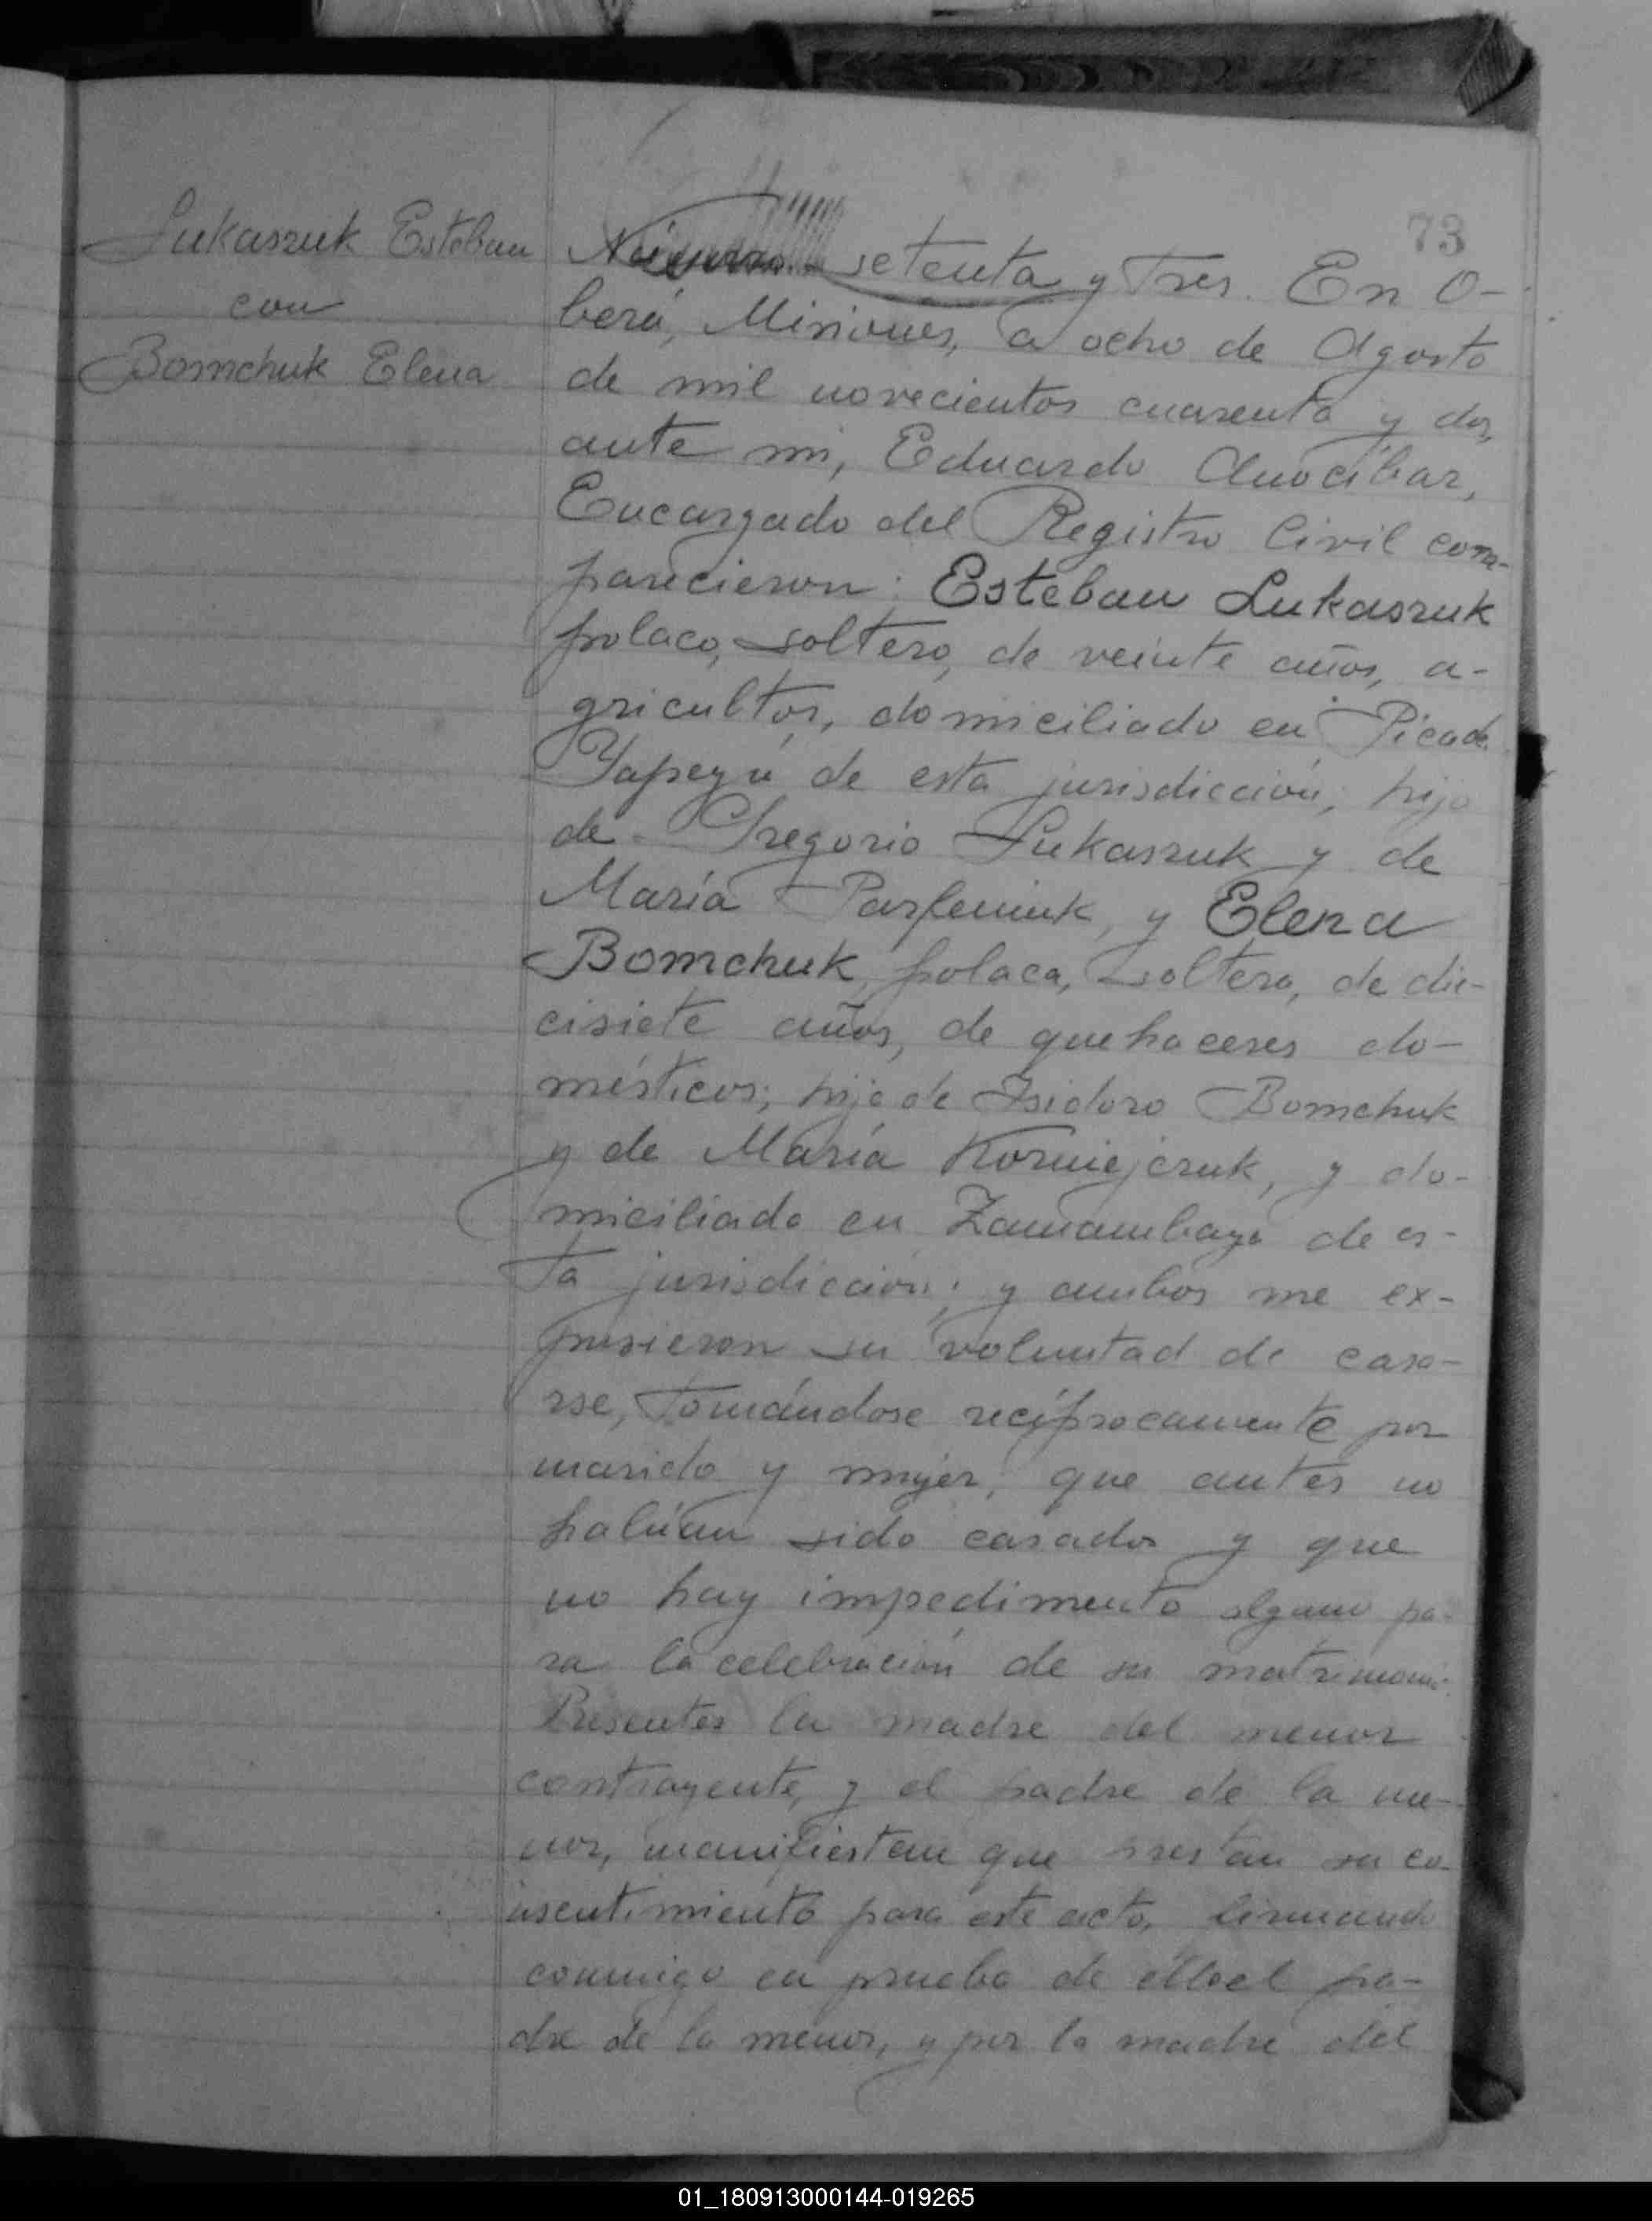 73
Lukaszuk Esteban
con
Bomchuk Elena
Número setenta y tres. En O-
berá, Misiones, a ocho de Agosto
de mil novecientos cuarenta y dos,
ante mi, Eduardo Anocíbar,
Encargado del Registro Civil com-
parecieron: Esteban Lukaszuk
polaco, soltero, de veinte años, a-
gricultor, domiciliado en Picada
Yapeyú de esta jurisdicción, hijo
de Gregorio Lukaszuk y de
María Parfeniuk, y Elena
Bomchuk, polaca, soltera, de die-
cisiete años, de quehaceres do-
mésticos; hija de Isidoro Bomchuk
y de María Korniejczuk, y do-
miciliada en Zamambaya de es-
ta jurisdicción; y ambos me ex-
pusieron su voluntad de casa-
rse, tomándose recíprocamente por
marido y mujer, que antes no
habían sido casados y que
no hay impedimento alguno pa-
ra la celebración de su matrimonio.
Presentes la madre del menor
contrayente, y el padre de la me-
nor, manifiestan que prestan su co-
nsentimiento para este acto, firmando
conmigo en prueba de ello el pa-
dre de la menor, y por la madre del
01_180913000144-019265